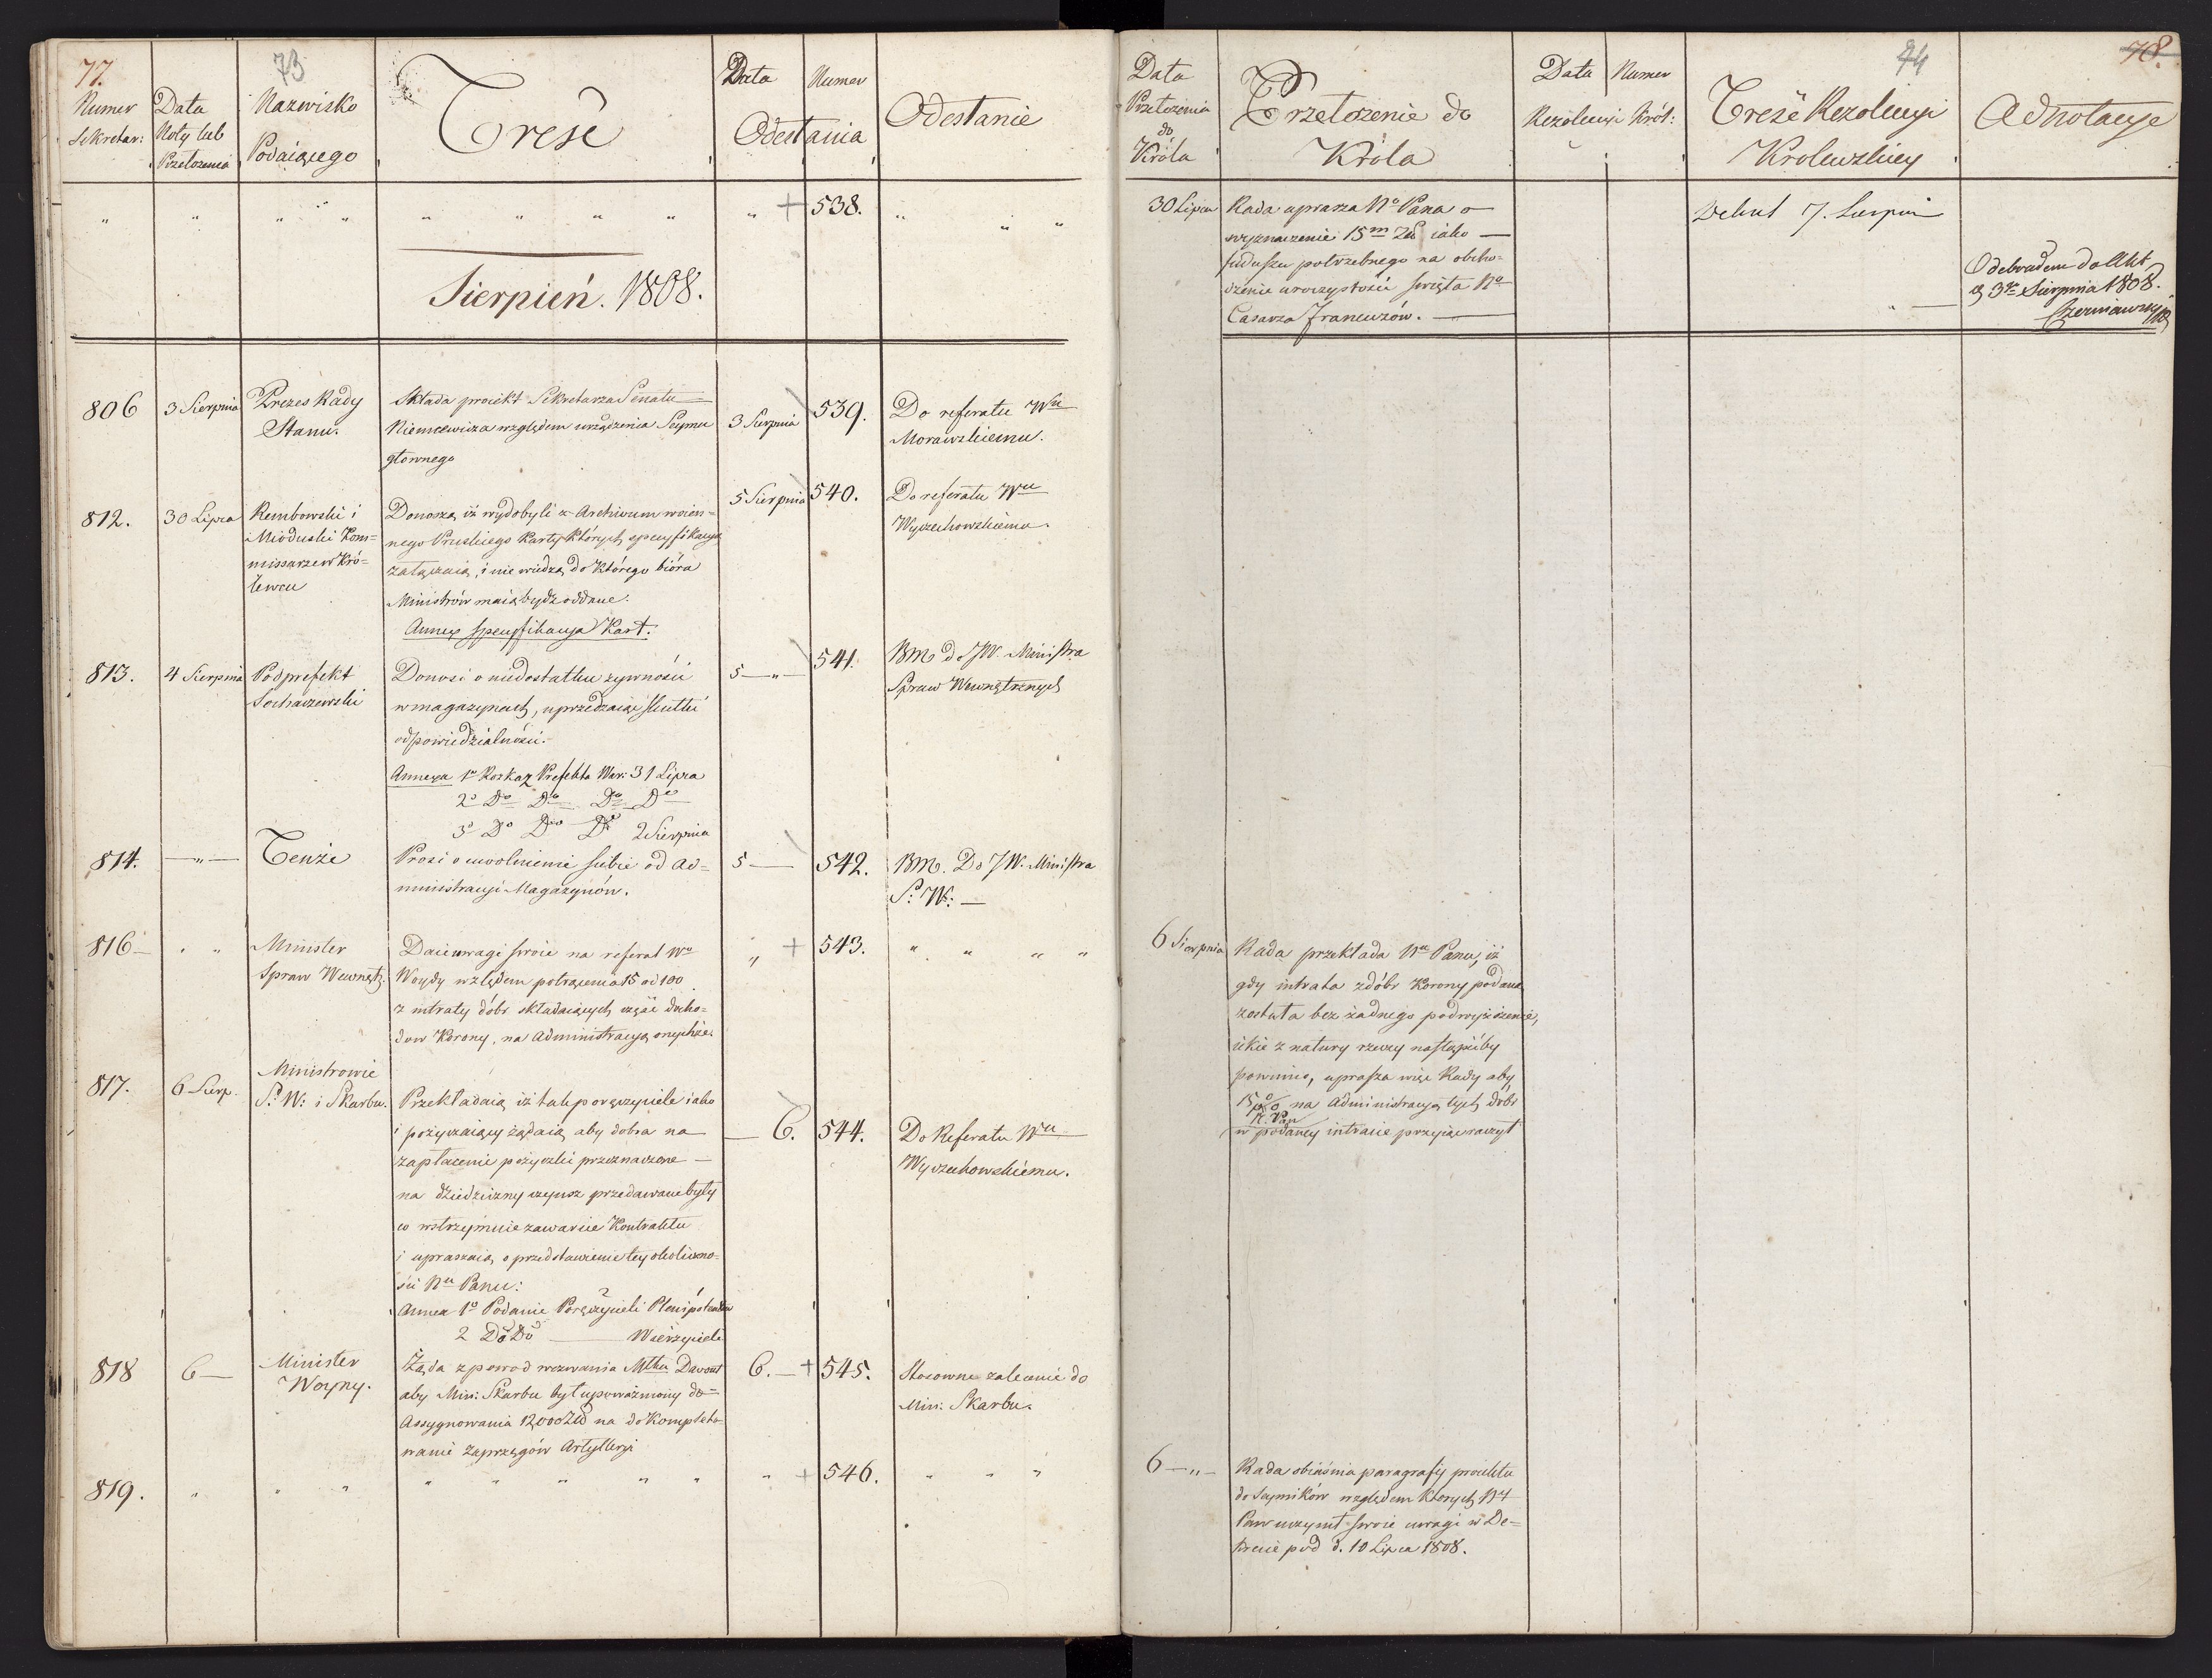 77.
73
Numer
Sekretar:
Data
Noty lub
Przełożenia
Nazwisko
Podaiącego
Treść
Data
Numer
Odesłania
Odesłanie
" " " " " " " " " + 538. " " "
Sierpień. 1808.
806
3 Sierpnia
Prezes Rady
Stanu.
Składa proiekt Sekretarza Senatu
Niemcewicza względem urządzenia Seymu
głownego
3 Sierpnia
539.
Do referatu Wu
Morawskiemu.
812.
30 Lipca
Rembowski i
Mioduski Kom=
missarze w Kró=
lewcu
Donoszą iż wydobyli z Archivum woien=
nego Pruskiego Karty których specyfikacyą
załączaią, i nie wiedzą do którego bióra
Ministrów maią bydz oddane.
Annex specyfikacya Kart.
5 Sierpnia
540.
Do referatu Wu
Wyczechowskiemu.
813.
4 Sierpnia
Podprefekt
Sochaczewski
Donosi o niedostatku żywności
w magazynach, uprzedzaiąc skutki
odpowiedzialności.
Annexa 1o Rozkaz Prefekta War: 31 Lipca
2o Do Do Do Do
3o Do Do Do 2 Sierpnia
5 — " —
541.
BM do JW. Ministra
Spraw Wewnętrznych
814.
— " —
Tenże
Prosi o uwolnienie siebie od Ad=
ministracyi Magazynów.
5 —
542.
BM. Do JW. Ministra
S: W: —
816 —
" "
Minister
Spraw Wewnętz:
Daie uwagi swoie na referat Wo
Woydy względem potrącenia 15 od 100
z intraty dóbr składaiących część docho=
dow Korony, na Administracyą onychże.
" + 543. " " " "
817.
6 Sierp.
Ministrowie
S: W: i Skarbu.
Przekładaią iż tak poręczyciele iako
i pożyczaiący żądaią aby dobra na
zapłacenie pożyczki przeznaczone —
na dziedziczny czynsz przedawane były
co wstrzymuie zawarcie Kontraktu
i upraszaią o przedstawienie tey okoliczno=
ści Nu Panu:
Annex 1o Podanie Poręczycieli Plenipotentów
2 Do Do — Wierzycieli
— 6.
544.
Do Referatu Wu
Wyczechowskiemu.
818
6 —
Minister
Woyny.
Żąda z powod wezwania Młka Davout
aby Min: Skarbu był upoważniony do=
Assygnowania 12,000 Złł na do Kompleto
wanie zaprzęgów Artylleryi
6. — +
545.
Stosowne zalecenie do
Min: Skarbu.
819. " " " " " " " " " + 546. " " "
74
78.
Data
Przełożenia
do
Króla
Przełożenie do
Króla
Data
Numer
Rezolucyi Król:
Treść Rezolucyi
Krolewskiey
Adnotacye
30 Lipca
Rada uprasza No Pana o
wyznaczenie 15m Złł iako —
fuduszu potrzebnego na obcho=
dzenie uroczystości święta No
Cesarza Francuzów. —
7. Sierpni
Odebrałem do Akt
d 3o Sierpnia 1808.
6 Sierpnia
Rada przekłada Nu Panu, iż
gdy intrata z dóbr Korony podana
została bez żadnego podwyższenia,
iakie z natury rzeczy nastąpićby
powinno, uprasza więc Rady aby
15 % na Administracyą tych dobr
N. Pan
w podaney intracie przyiąć raczył
6 — " —
Rada obiaśnia paragrafy proiektu
do Seymików względem których Ny
Pan uczynił swoie uwagi w De=
krecie pod d. 10 Lipca 1808.